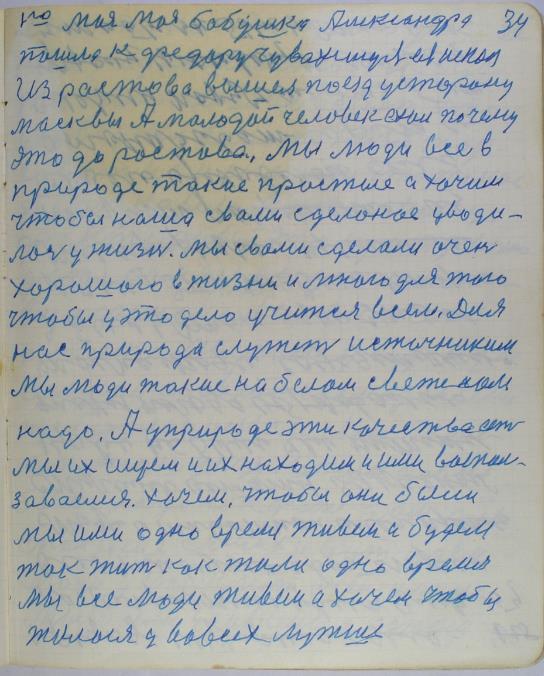 но моя моя бабушка Александра 34
пошла к федору чувахину
Из растова вышел поезд усторону
масквы А маладой человек схал почему
это до ростова. Мы люди все в
природе такие простые а хочим
чтобы наша свами сделоное уводи-
лос у жизн. мы свами сделали очен
хорошого в жизни и много для того
чтобы у это дело учится всем. Для
нас природа служет источником
мы люди такие на белом свете нам
надо. А уприроде эти качества ест
мы их ищем и их находим и ими воспол-
заваемся. хочем, чтобы они были
мы ими одно время живем и будем
так жит как жили одно время
мы все люди живем а хочем чтобы
жилося у вовсех лутше